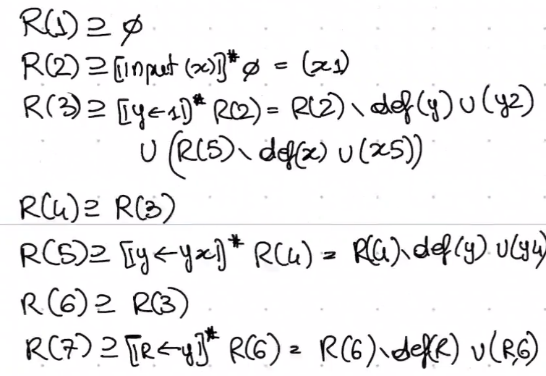 R(1) ⊇ ∅
R(2) ⊇ [[input (x)]]* ∅ = (x1)
R(3) ⊇ [[y←1]]* R(2) = R(2) \ def(y) ∪ (y2)
∪ (R(5) \ def(x) ∪ (x5))
R(4) ⊇ R(3)
R(5) ⊇ [[y←yx]]* R(4) = R(4) \ def(y) ∪ (y4)
R(6) ⊇ R(3)
R(7) ⊇ [[R←y]]* R(6) = R(6) \ def(R) ∪ (R,6)